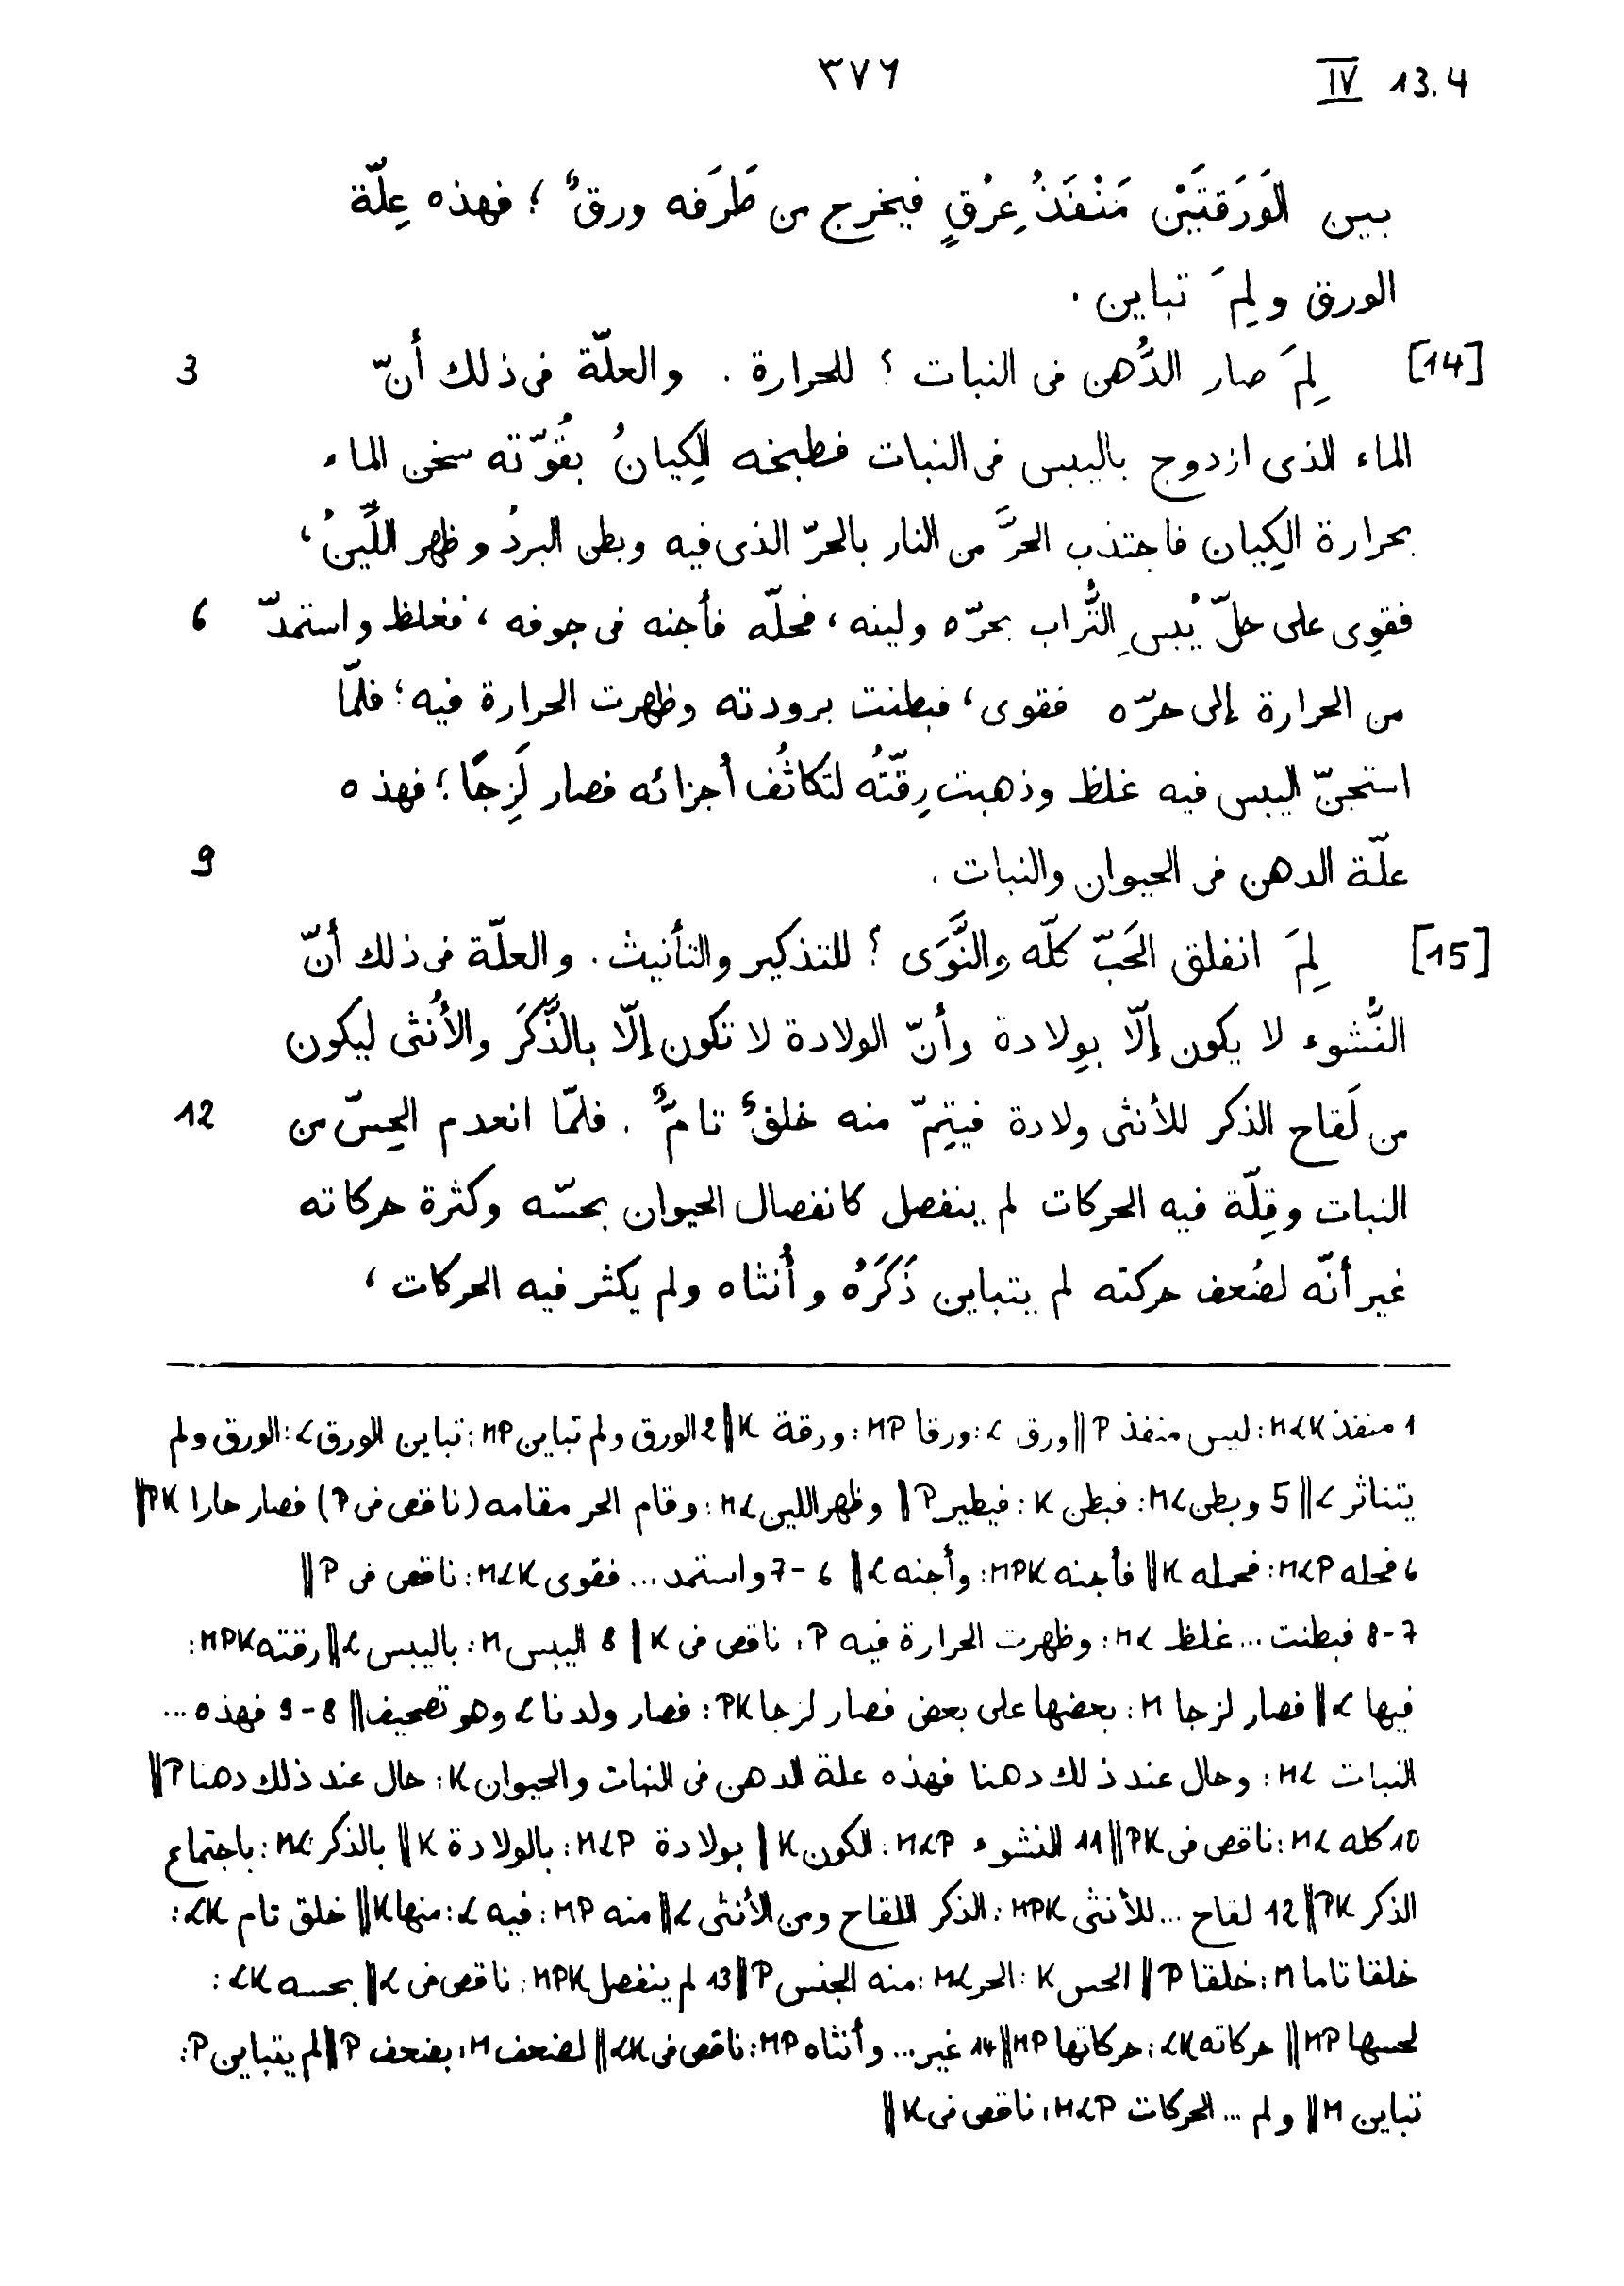 ٣٧٦ IV 13.4
بين الوَرَقتَيْن مَنْفَذُ عِرْقٍ فيخرج من طَرَفه ورقٌ ؛ فهذه عِلّة
الورق ولِمَ تباين .
[14] لِمَ صار الدُّهن فى النبات ؟ للحرارة . والعلّة فى ذلك أنّ 3
الماء الذى ازدوج باليبس فى النبات فطبخه الكِيانُ بقُوّته سخن الماء
بحرارة الكِيان فاجتذب الحرَّ من النار بالحرّ الذى فيه وبطن البردُ وظهر اللّينُ ،
فقوِى على حلّ يُبسِ التُّراب بحرّه ولينه ، فحلّه فأجنه فى جوفه ، فغلظ واستمدّ 6
من الحرارة إلى حرّه فقوى ، فبطنت برودته وظهرت الحرارة فيه ؛ فلمّا
استجنّ اليبس فيه غلظ وذهبت رِقّتُه لتكاثُف أجزائه فصار لَزِجًا ؛ فهذه
علّة الدهن فى الحيوان والنبات . 9
[15] لِمَ انفلق الحَبّ كلّه والنَّوَى ؟ للتذكير والتأنيث . والعلّة فى ذلك أنّ
النُّشوء لا يكون إلّا بوِلادة وأنّ الولادة لا تكون إلّا بالذَّكَر والأُنثى ليكون
من لَقاح الذكر للأنثى ولادة فيتِمّ منه خلقٌ تامٌّ . فلمّا انعدم الحِسّ من 12
النبات وقِلّة فيه الحركات لم ينفصل كانفصال الحيوان بحسّه وكثرة حركاته
غير أنّه لضُعف حركته لم يتباين ذَكَرُه وأُنثاه ولم يكثر فيه الحركات ،
1 منفذ MLK: ليس منفذ P || ورق L: ورقا MP: ورقة K || 2 الورق ولم تباين MP: تباين الورق L: الورق ولم
يتناثر L || 5 وبطن ML: فبطن K: فيطير P || وظهر اللين ML: وقام الحر مقامه (ناقص فى P) فصار حارا PK ||
6 فحله MLP: فحمله K || فأجنه MPK: وأجنه L || 6-7 واستمد ... فقوى MLK: ناقص فى P ||
7-8 فبطنت ... غلظ ML: وظهرت الحرارة فيه P: ناقص فى K || 8 اليبس M: باليبس L || رقته MPK:
فيها L || فصار لزجا M: بعضها على بعض فصار لزجا PK: فصار ولدنا L وهو تصحيف || 8-9 فهذه ...
النبات ML: وحال عند ذلك دهنا فهذه علة الدهن فى النبات والحيوان K: حال عند ذلك دهنا P ||
10 كله ML: ناقص فى PK || 11 النشوء MLP: الكون K || بولادة MLP: بالولادة K || بالذكر ML: باجتماع
الذكر PK || 12 لقاح ... للأنثى MPK: الذكر اللقاح ومن الأنثى L || منه MP: فيه L: منها K || خلق تام LK:
خلقا تاما M: خلقا P || الحس K: الحر ML: منه الجنس P || 13 لم ينفصل MPK: ناقص فى L || بحسه LK:
لحسها MP || حركاته LK: حركاتها MP || 14 غير ... وأنثاه MP: ناقص فى LK || لضعف M: بضعف P || لم يتباين P:
تباين M || ولم ... الحركات MLP: ناقص فى K ||